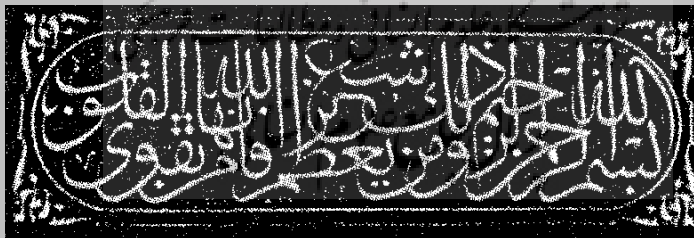 بسم الله الرحمن الرحيم ومن يعظم شعائر الله فإنها من تقوى القلوب